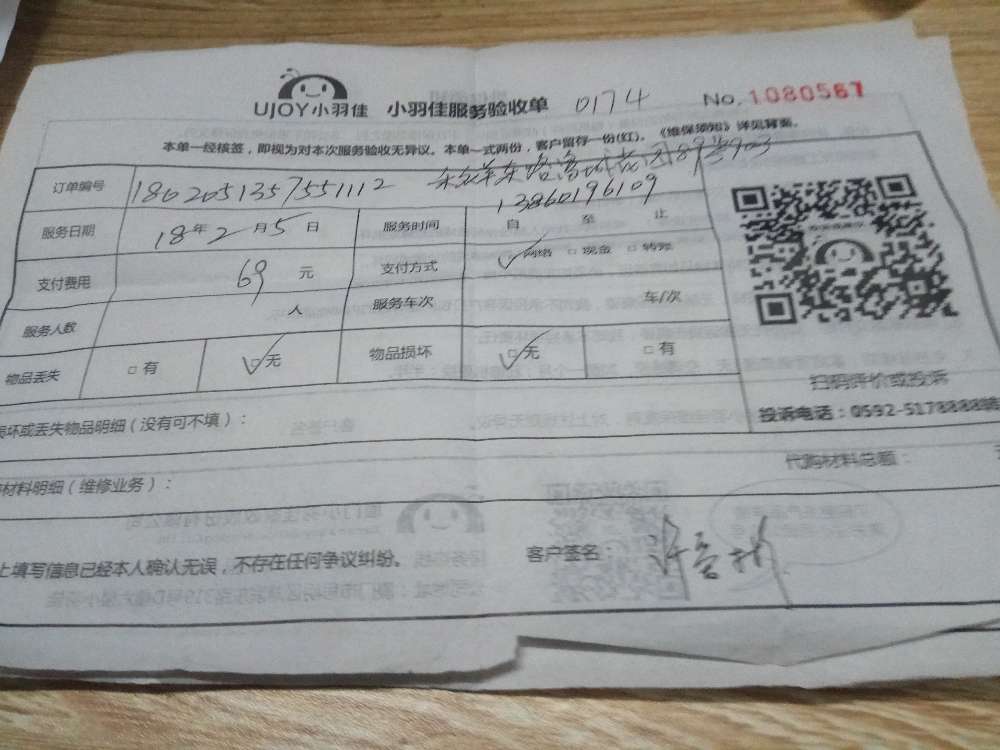 UJOY小羽佳 小羽佳服务验收单 0174 No.1080567
本单一经核签，即视为对本次服务验收无异议。本单一式两份，客户留存一份(红)。《维保须知》详见背面。
订单编号 1802051357551112
13860196109
服务日期 18年2月5日 服务时间 自 至 止
支付费用 69元 支付方式 ✓网络 □现金 □转账
服务人数 人 服务车次 车/次
物品丢失 □有 ✓无 物品损坏 ✓无 □有
扫码评价或投诉
投诉电话：0592-5178888
损坏或丢失物品明细（没有可不填）：
材料明细（维修业务）： 代购材料总额：
上填写信息已经本人确认无误，不存在任何争议纠纷。 客户签名：